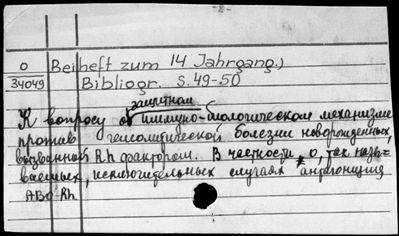 -2-
0 Beiheft zum 14 Jahrgang.)
34049 Bibliogr. S. 49-50
защитном
К вопросу о иммуно-биологическом механизме
против гемолитической болезни новорожденных,
вызванной Rh фактором. В частности, о, так назы=
ваемых, исключительных случаях антагонизма
ABO Rh.